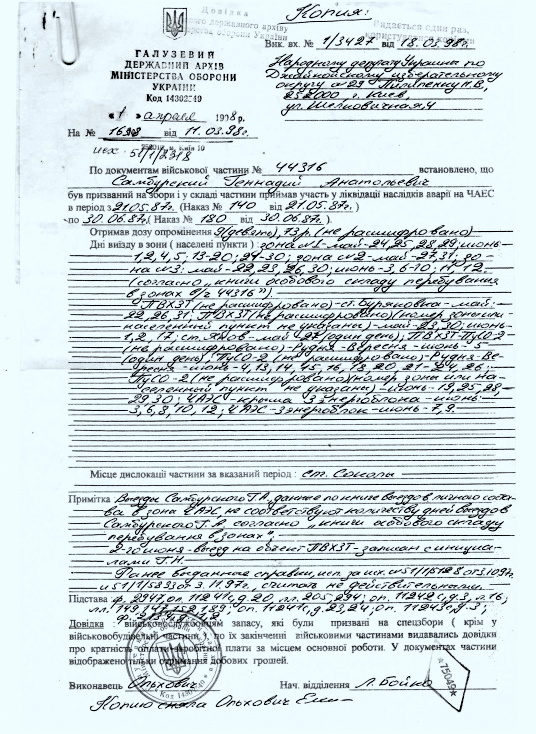 Копия:
Довідка
державного архіву
оборони України
Видається один раз,
Вих. вх. № 1/3427 від 18.03.98г.
ГАЛУЗЕВИЙ
ДЕРЖАВНИЙ АРХІВ
МІНІСТЕРСТВА ОБОРОНИ
УКРАЇНИ
Код 14302549
Народному депутату Украины по
Джанкойскому избирательному
округу
252000 г. Киев,
ул. Шелковичная, 4
« 1 » апреля 1998 р.
На № від 11.03.98г.
исх - 51/1/2318
По документам військової частини № 44316 встановлено, що
Самбурский Геннадий Анатольевич
був призваний на збори і у складі частини приймав участь у ліквідації наслідків аварії на ЧАЕС
в період з 21.05.87г. (Наказ № 140 від 21.05.87г.)
по 30.06.87г. (Наказ № 180 від 30.06.87г.).
Отримав дозу опромінення 9(девять),73 р. (не расшифровано)
Дні виїзду в зони ( населені пункти ) зона №1-май-24,25,28,29; июнь-
1,2,4,5; 13-20; 24-30; зона №2-май-27,31; зо-
на №3: май-22,23,26,30; июнь-3,6-10; 11,12
(согласно „книги особового складу перебування
в зонах в/ч 44316")
ПВХЗТ (не расшифровано)-ст. Буряковка-май:
22,26,31; ПВХЗТ (не расшифровано) (номер зоны или
населенный пункт не указаны)-май-23,30; июнь-
1,2,17; ст. Янов-май-27 (один день), ПВХЗТ ПуСО-2
(не расшифровано)-Рудня-Вересня-июнь-5-
(один день), ПуСО-2 (не расшифровано)-Рудня-Ве-
ресня-июнь-4,13,14,15,16,18,20,21-24,26;
ПуСО-2 (не расшифровано) (номер зоны или на-
селенный пункт не указаны)-июнь-19,25,28,
29,30; ЧАЭС-крыша 3 энергоблока-июнь-
3,6,8,10,12; ЧАЭС-3 энергоблок-июнь-7,9.
Місце дислокації частини за вказаний період : ст. Соколы
Примітка Выезды Самбурского Г.А. данные по книге выездов личного соста-
ва в зоны ЧАЭС не соответствуют количеству дней выездов
Самбурского Г.А. согласно „книги особового складу
перебування в зонах";
2-го июня-выезд на объект ПВХЗТ-записан с инициа-
лами Г.Н.
Ранее выданные справки, исх. за от 3.10.97г.
и от 3.11.97г. считать не действительными.
Підстава ф. 2947, оп. 11241с, д. 20, лл. 205,294; оп. 11242с, д. 3, л. 16;
лл. 149,147,152,189; оп. 11241с, д. 23,24; оп. 11243с, д. 3;
Довідка : військовослужбовцям запасу, які були призвані на спецзбори ( крім у
військовобудівельні частини ), по їх закінченні військовими частинами видавались довідки
про кратність оплати заробітної плати за місцем основної роботи. У документах частини
відображено тільки отримання добових грошей.
Виконавець Олькович Нач. відділення Л. Бойко
*75049*
Код 14302549
Копию сняла Олькович